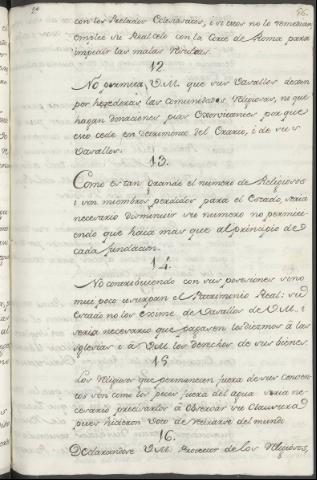 con los Prelados Eclesiasticos, i si estos no lo remedian
emplee su Real zelo con la Corte de Roma para
impedir las malas resultas.
12.
No permita V.M. que sus Vasallos dexen
por herederas las Comunidades Religiosas, ni que
hagan donaciones pias exorvitantes por que
esto cede en detrimento del Erario, i de sus
Vasallos.
13.
Como es tan grande el numero de Religiosos
i son miembros perdidos para el Estado, seria
necesario disminuir su numero no permiti-
endo que haia mas que al principio de
cada fundacion.
14.
No contribuiendo con sus posesiones sino
mui poco usurpan el Patrimonio Real: su
estado no los exime de Vasallos de V.M. i
seria necesario que pagasen los diezmos á las
Iglesias i á V.M. los derechos de sus bienes.
15.
Los Religiosos que permanecen fuera de sus Conven-
tos son como los peces fuera del agua: seria ne-
cesario precisarlos á observar su Clausura
pues hicieron voto de retirarse del mundo
16.
Declarandose V.M. Protector de los Religiosos,